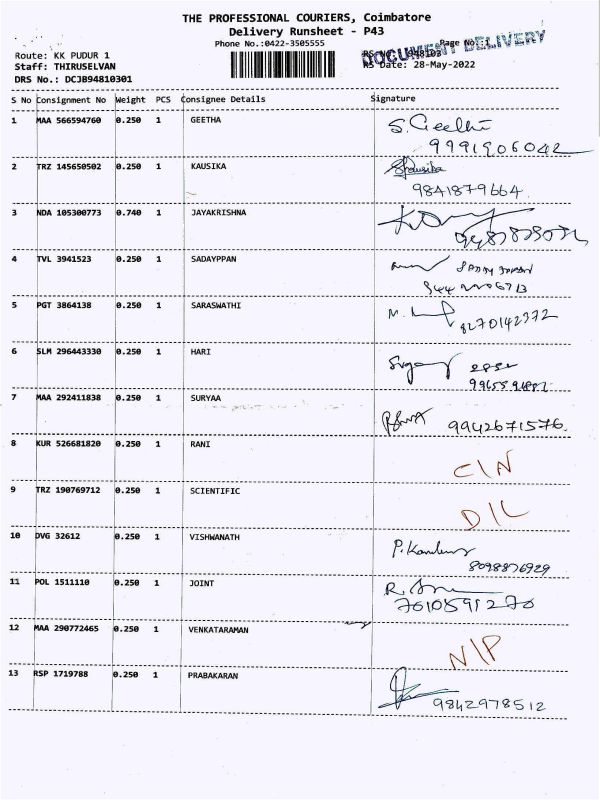 THE PROFESSIONAL COURIERS, Coimbatore
Delivery Runsheet - P43
Phone No.:0422-3505555
Page No.:1
DOCUMENT DELIVERY
Route: KK PUDUR 1
RS No.: 948103
Staff: THIRUSELVAN
RS Date: 28-May-2022
DRS No.: DCJB94810301
S No Consignment No Weight PCS Consignee Details Signature
1 MAA 566594760 0.250 1 GEETHA S. Geetha
9991906042
2 TRZ 145650502 0.250 1 KAUSIKA Kausika
9841879664
3 NDA 105300773 0.740 1 JAYAKRISHNA
4 TVL 3941523 0.250 1 SADAYPPAN
5 PGT 3864138 0.250 1 SARASWATHI M.
8270142372
6 SLM 296443330 0.250 1 HARI
7 MAA 292411838 0.250 1 SURYAA 9942671576.
8 KUR 526681820 0.250 1 RANI C/N
9 TRZ 190769712 0.250 1 SCIENTIFIC D/L
10 DVG 32612 0.250 1 VISHWANATH P.
8098876929
11 POL 1511110 0.250 1 JOINT R.
7010591270
12 MAA 290772465 0.250 1 VENKATARAMAN N/P
13 RSP 1719788 0.250 1 PRABAKARAN 9842978512